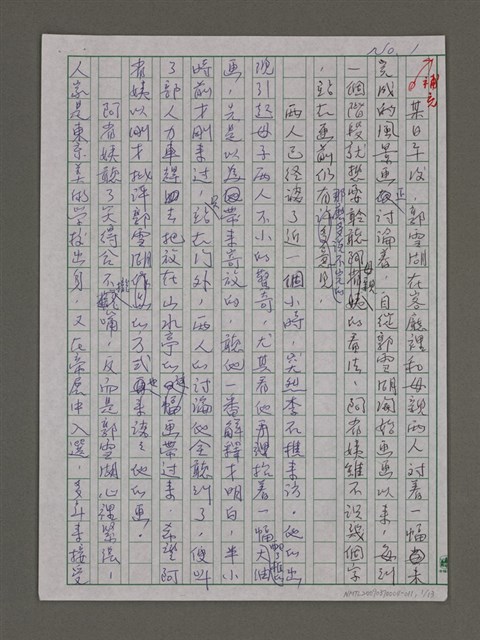 No. 1
補充
某日午後，郭雪湖在客廳裡和母親兩人對着一幅未
完成的風景畫正討論着，自從郭雪湖開始畫畫以來，每到
一個階段就想要聆聽母親的看法，阿有姨雖不識幾個字
，站在畫前仍有那麼多說不完的意見。
兩人已經談了近一個小時，突然李石樵來訪，他的出
現引起母子兩人不小的驚奇，尤其看他手裡抬着一幅大油
畫，先是以為帶來寄放的，聽他一番解釋才明白，半小
時前才剛來過，站在門外，兩人的討論他全聽到了，便叫
了部人力車趕去把放在山水亭的這幅畫帶過來，希望阿
有姨以剛才批評郭雪湖的方式也來談談他的畫。
阿有姨聽了笑得合不攏嘴，反而是郭雪湖心裡緊張，
人家是東京美術學校出身，又在帝展中入選，多年來接受